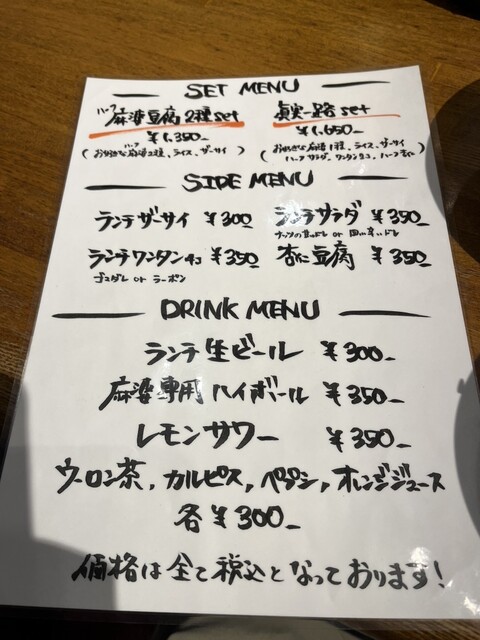 SET MENU
ハーフ
麻婆豆腐2種set
¥1,350-
(お好きな麻婆2種、ライス、ザーサイ)
真実一路set
¥1,650-
(お好きな麻婆1種、ライス、ザーサイ
ハーフサラダ、ワンタン2コ、ハーフ杏仁)
SIDE MENU
ランチザーサイ ¥300
ランチサラダ ¥350-
ランチワンタン4コ ¥350-
ゴマダレ or ラーポン
杏仁豆腐 ¥350-
DRINK MENU
ランチ生ビール ¥300-
麻婆専用ハイボール ¥350-
レモンサワー ¥350-
ウーロン茶, カルピス, ペプシ, オレンジジュース
各¥300-
価格は全て税込となっております!